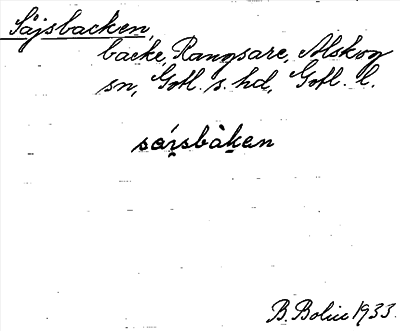 Såjsbacken,
backe, Rangsare, Alskog
sn, Gotl. s. hd, Gotl. l.
B. Bolin 1933.